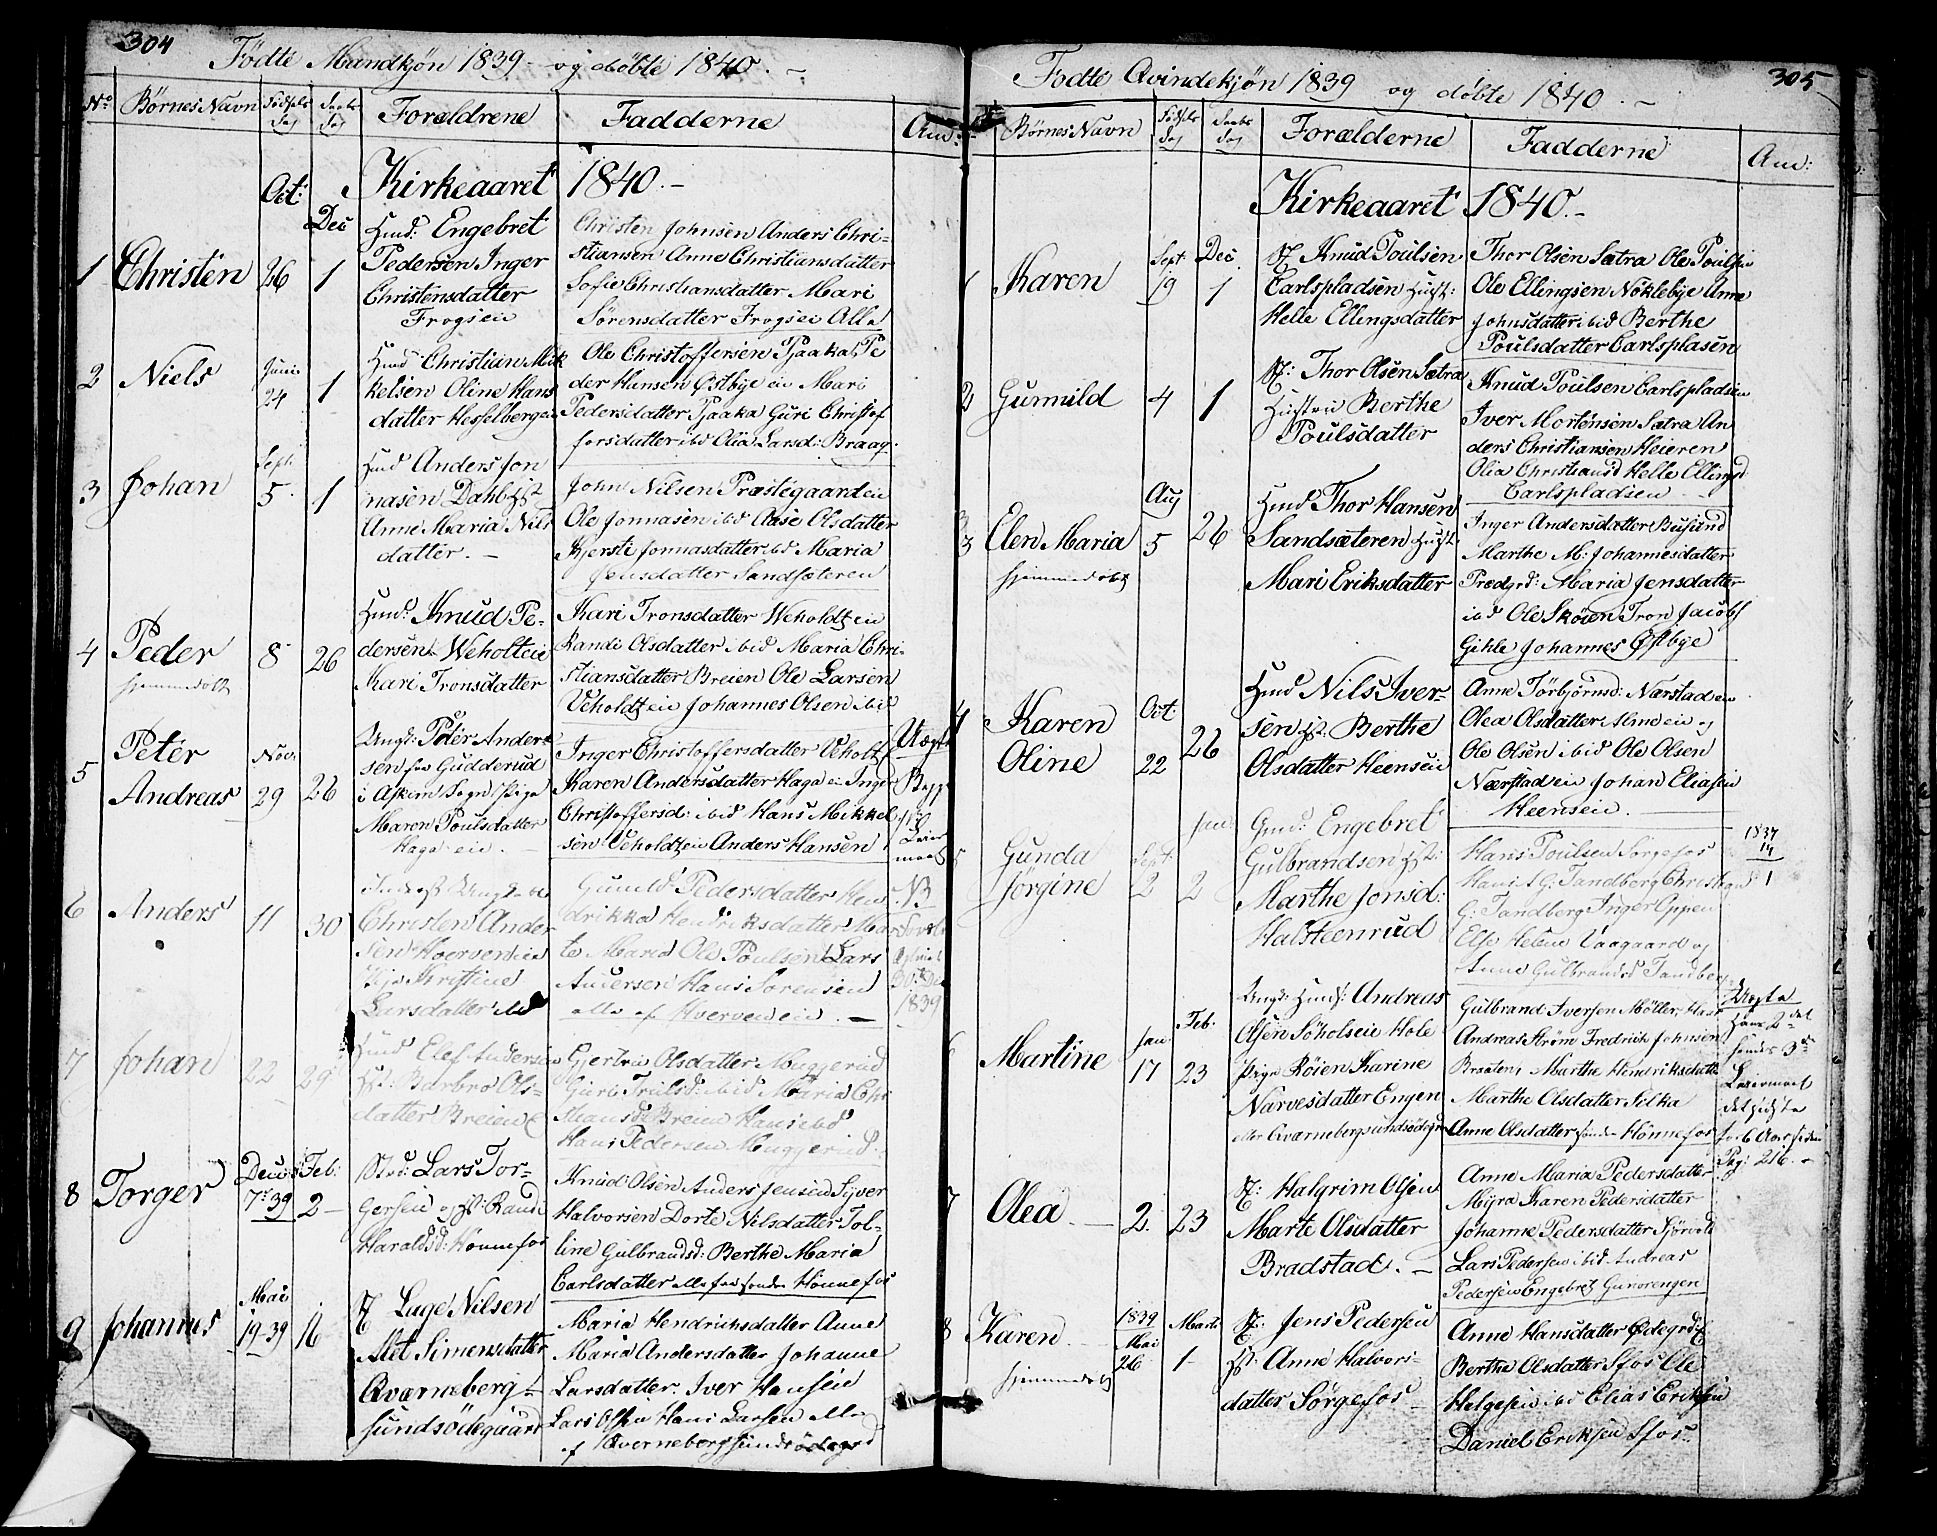 304
Födte Mandkjön 1839 - og döbte 1840. -
No Börnes Navn Födsels Dag Daabs Dag Forældrene Fadderne Anm:
Kirkeaaret 1840. -
1 Christen Oct: 26 Dec 1
Huusd: Engebret
Pedersen Inger
Christensdatter
Frogsei
Christen Johnsen Anders Chri-
stiansen Anne Christiansdatter
Sofie Christiansdatter Mari
Sörensdatter Frogsei Alle
2 Niels Junii 24 1
Huusd Christian Mik
kelsen Oline Hans
datter Hesselberg
Ole Christoffersen Tjaaka Pe
der Hansen Östbye ei Mari
Pedersdatter Tjaaka Guri Christof
fersdatter ibd Olia Larsd: Braag.
3 Johan Sept. 5. 1
Huusd Anders Jon
nasen Dahl Hst
Anne Maria Nils
datter. -
John Nilsen Præstegaardei
Ole Jonnasen ibd Aase Olsdatter
Kjersti Jonnasdatter ibd Maria
Jensdatter Sandsæteren
4 Peder hjemmedöbt 8 26
Huusd. Knud Pe-
dersen Weholtei
Kari Tronsdatter
Kari Tronsdatter Weholdt ei
Randi Olsdatter ibid Maria Chri-
stiansdatter Breien Ole Larsen
Veholdt ei Johannes Olsen ibd
5 Peter Andreas Nov: 29 26
Ungk: Peter Ander-
sen fra Gudderud
i Askim Sogn Pige
Maren Poulsdatter
Haga ei.
Inger Christoffersdatter Veholt
Karen Andersdatter Haga ei Inger
Christoffersd: ibid Hans Mikkel
sen Veholdt ei Anders Hansen
Uægte
6 Anders 11 30
Christen Ander
sen Hoerven ei
Pige Kristine
Larsdatter ibd
Gunild Pedersdatter Hen
drikka Hendriksdatter Mar
te Maria Ole Poulsen Lars
Andersen Hans Sörensen
alle af Hverven ei. -
NB
1839
7 Johan 22 29
Huusd Elef Andersen
Hst: Barbro Ols-
datter Breien
Gjertru Olsdatter Muggerud
Guri Trulsd: ibid Maria Chri
stiansd Breien Hans ibd
Hans Pedersen Muggerud.
8 Torger Decbr 7de 39 Feb: 2 -
Lars Tor-
gersen og Hst: Randi
Haraldsd: Hönnefos
Knud Olsen Anders Jensen Syver
Halvorsen Dorte Nilsdatter Tol-
line Gulbrandsd: Berthe Maria
Carlsdatter alle fra sondre Hönnefos
9 Johannes Mai 19-39 16
Luge Nilsen
Alet Simensdatter
Qværneberg-
sundsödegaard
Maria Hendrichsdatter Anne
Maria Andersdatter Johanne
Larsdatter. Iver Hansen
Lars Olsen Hans Larsen alle
af Qverneberg sundsödegrd
305
Fødte Qvindekjön 1839 og döbte 1840. -
Börnes Navn Födsels Dag Daabs Dag Forælderne Fadderne Anm:
Kirkeaaret 1840. -
1 Karen Sept: 19 Dec 1
Knud Poulsen
Carlspladsen Hust:
Helle Ellingsdatter
Thor Olsen Sætra Ole Poulsen
Ole Ellingsen Nöklebye Anne
Johnsdatter ibid Berthe
Poulsdatter Carlsplasen
2 Gunnild 4 1
Thor Olsen Sætra
Hustru Berthe
Poulsdatter
Knud Poulsen Carlspladsen
Iver Mortensen Sætra An
ders Christiansen Heieren
Olia Christiansd Helle Ellingsd
Carlspladsen
3 Elen Maria hjemmedöbt Aug 5 26
Huusd Thor Hansen
Sandsæteren Hust.
Mari Eriksdatter
Inger Andersdatter Busund
Marthe M: Johannesdatter
Prædgrd: Maria Jensdatter
ibd Ole Skoien Tron Jacobs
Gihle Johannes Östbye
4 Karen Oline Oct 22 26
Huusd Nils Iver-
sen Hst. Berthe
Olsdatter Heensei
Anne Törbjörnsd: Nærstad ei
Olea Olsdatter Almeei og
Ole Olsen ibid Ole Olsen
Nærstad ei Johan Eliasen
Heensei. -
5 Gunda Jörgine Sept: 2 Jan: 2
Engebret
Gulbrandsen Hst:
Marthe Jonsd:
Halsteenrud
Hans Poulsen Sörgefos
Hans A G: Tandberg Christian
G: Tandberg Inger Oppen
Else Helene Vaagaard og
Anne Gulbrandsd Tandberg
6 Martine Jan 17 Feb: 23
Ungk: Huusf: Andreas
Olsen Soholsei Hole
Pige Röien Karine
Narvesdatter Engen
eller Qværnebergsundsödegrd
Gulbrand Iversen Möller, Hans
Andreas Ström Fredrich Johnsen
Braaten, Marthe Hendriksdatt
Marthe Olsdatter Silka
Anne Olsdatter sondre Hönnefos
Uægte
Hans 2det
hendes 3die
Leiermaal
det sidste
for 6 Aar siden
Pag: 216. -
7 Olea. - 2. 23
Halgrim Olsen
Marte Olsdatter
Bradstad. -
Anne Maria Pedersdatter
Myra Karen Pedersdatter
Johanne Pedersdatter Sjörvold
Lars Pedersen ibid Andreas
Pedersen Engebret Gunorengen
8 Karen hjemmedöbt 1839 Mai 26 Marts 1-
Jens Pedersen
Hst: Anne Halvors-
datter Sörgefos -
Anne Hansdatter Ödegrd
Berthe Olsdatter Sfos Ole
Helgesen ibd Elias Eriksen
Daniel Eriksen Sfos.